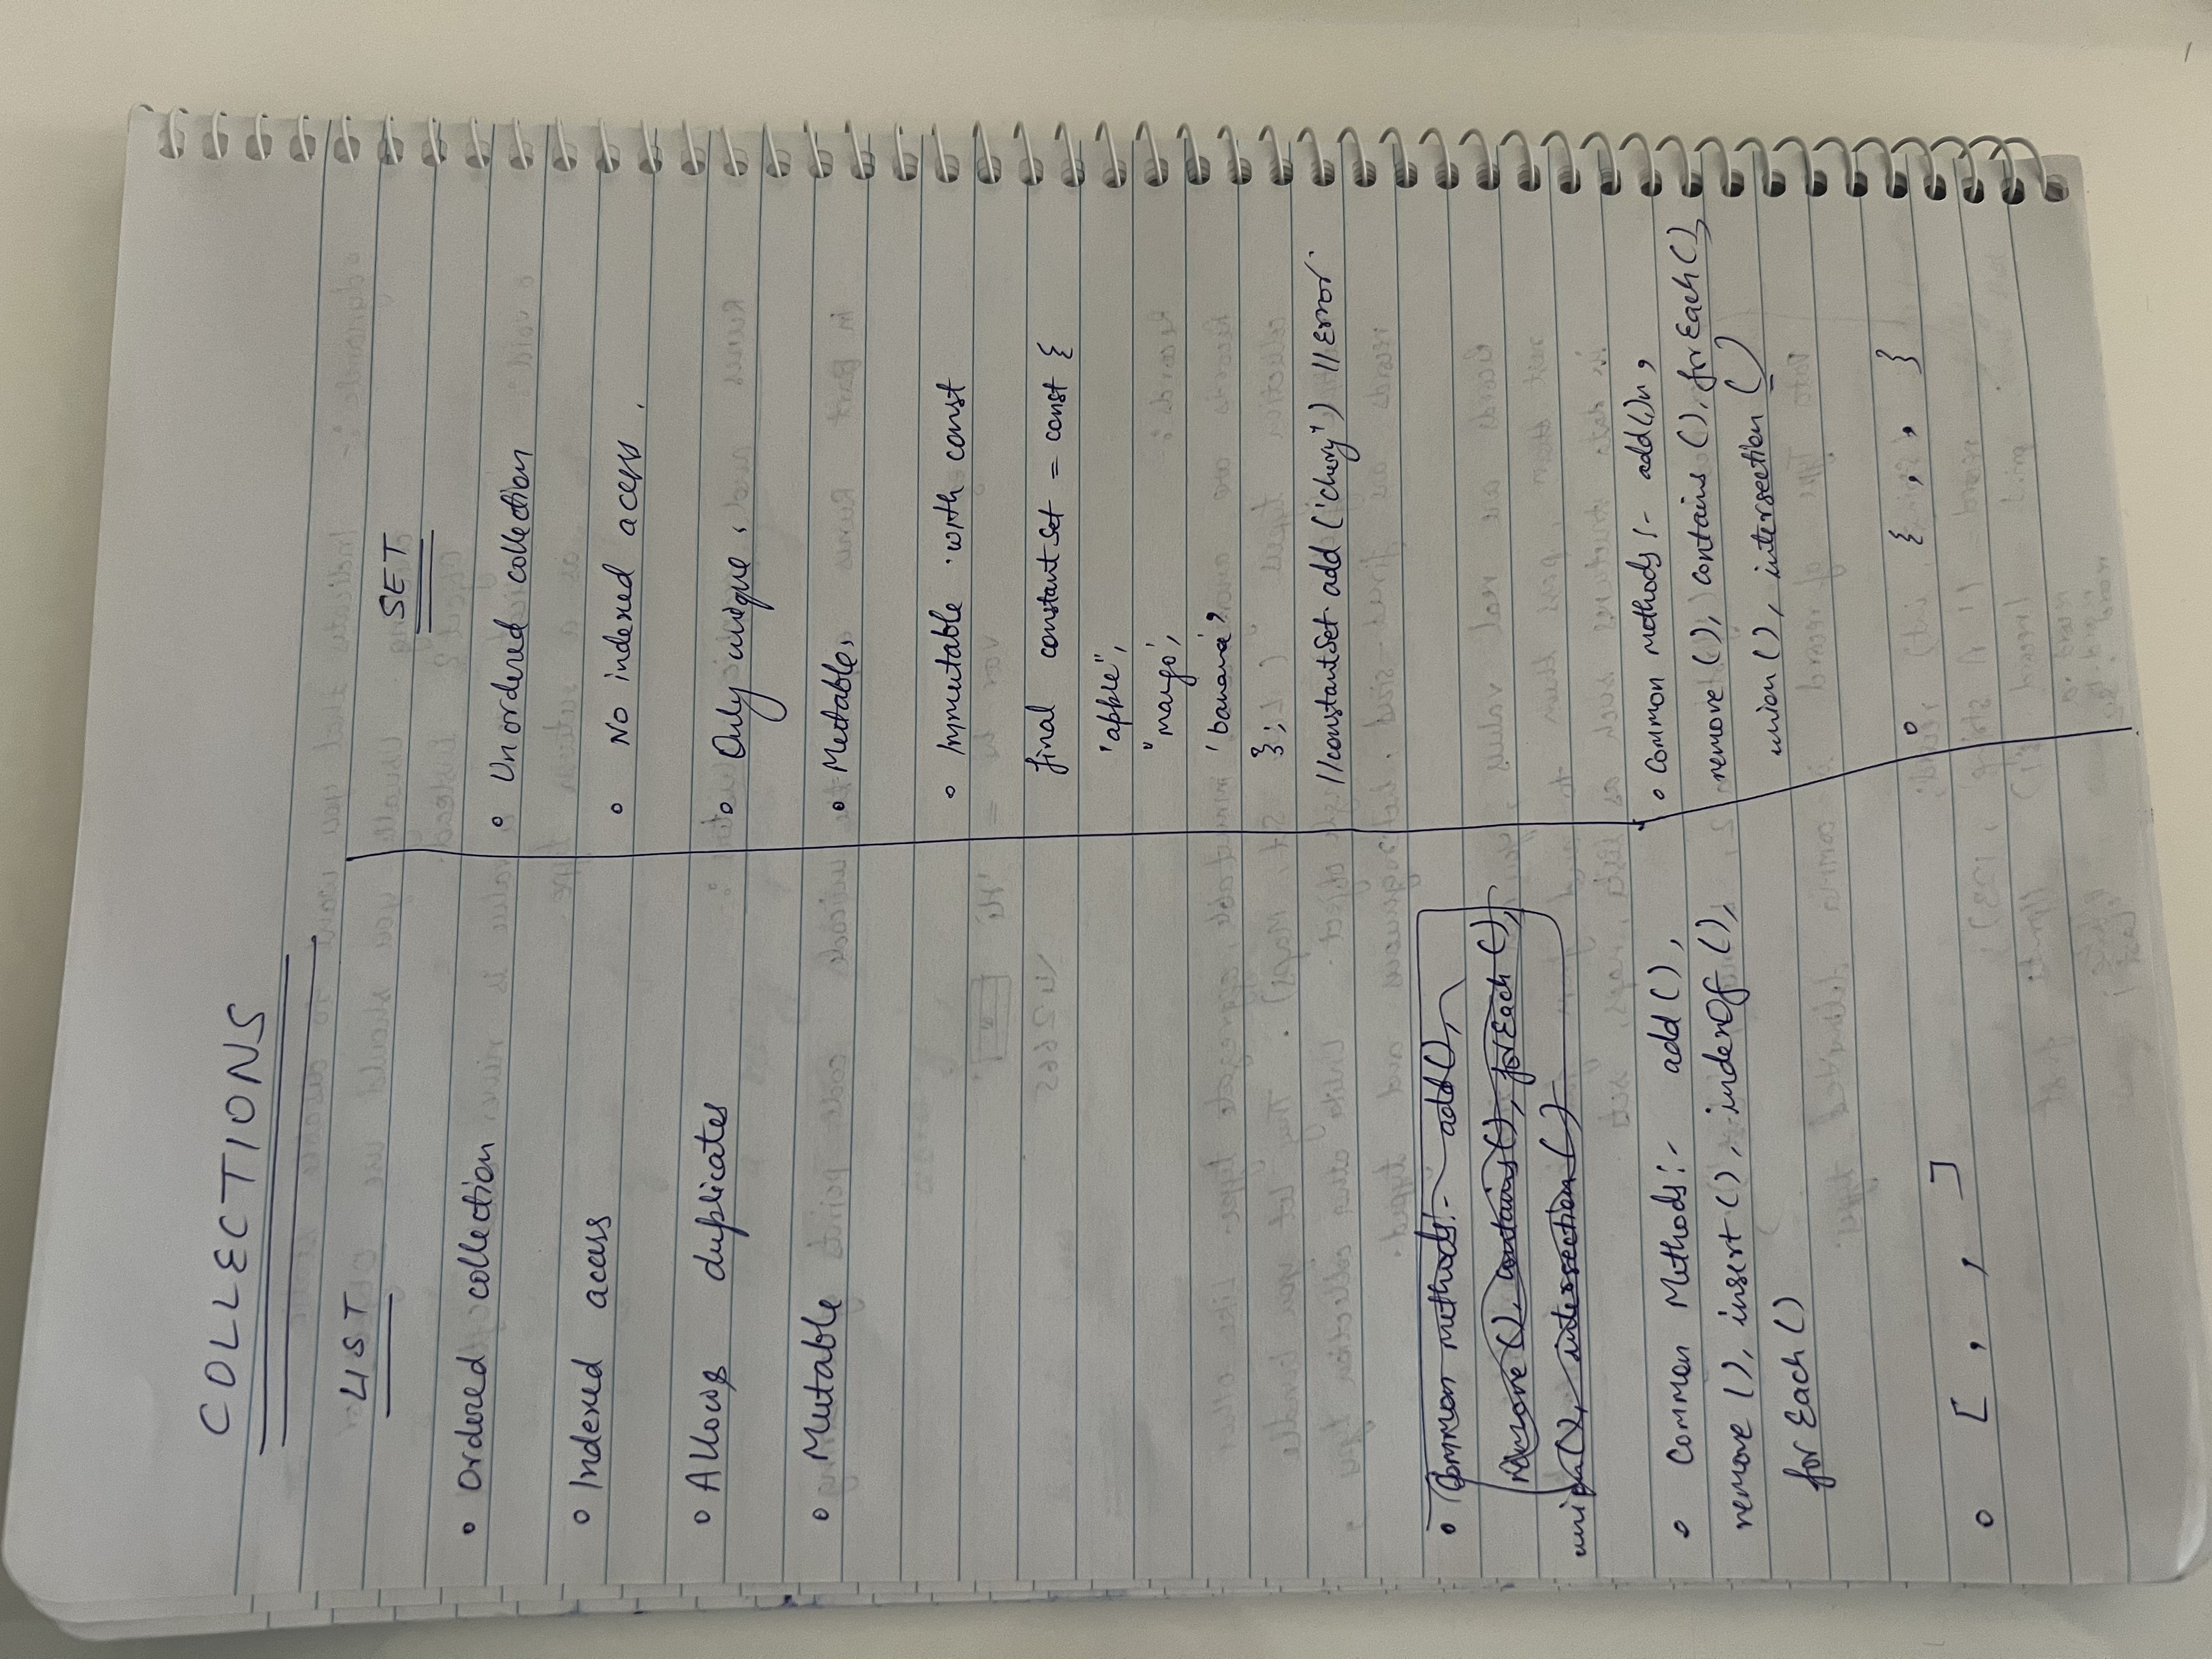 COLLECTIONS
LIST
• Ordered collection
• Indexed acass
• Allows duplicates
• Mutable
• Common methods:- add(),
remove(), contains(), forEach(),
union(), intersection()
• Common Methods:- add(),
remove(), insert(), indexOf(),
forEach()
• [ , , ]
SET
• Unordered collection
• No indexed acess.
• Only unique.
• Mutable,
• Immutable with const
final constantSet = const {
'apple",
"mango',
'banana'
};
//constantSet.add('chery") //Error
• Common methods:- add(),
remove(), contains(), forEach(),
union(), intersection()
• { , , }